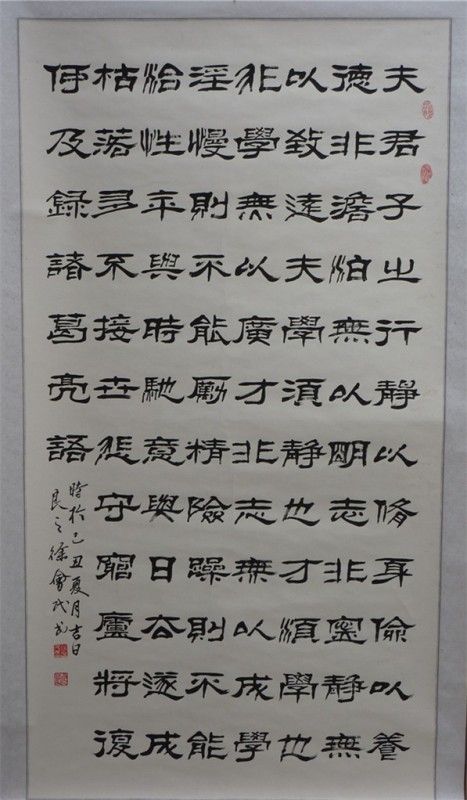 夫君子之行靜以脩身儉以養
德非澹怕無以明志非寧靜無
以致遠夫學須靜也才須學也
非學無以廣才非志無以成學
淫慢則不能勵精險躁則不能
冶性年與時馳意與日去遂成
枯落多不接世悲守窮廬將復
何及錄諸葛亮語
時於己丑夏月吉日
之徐會書